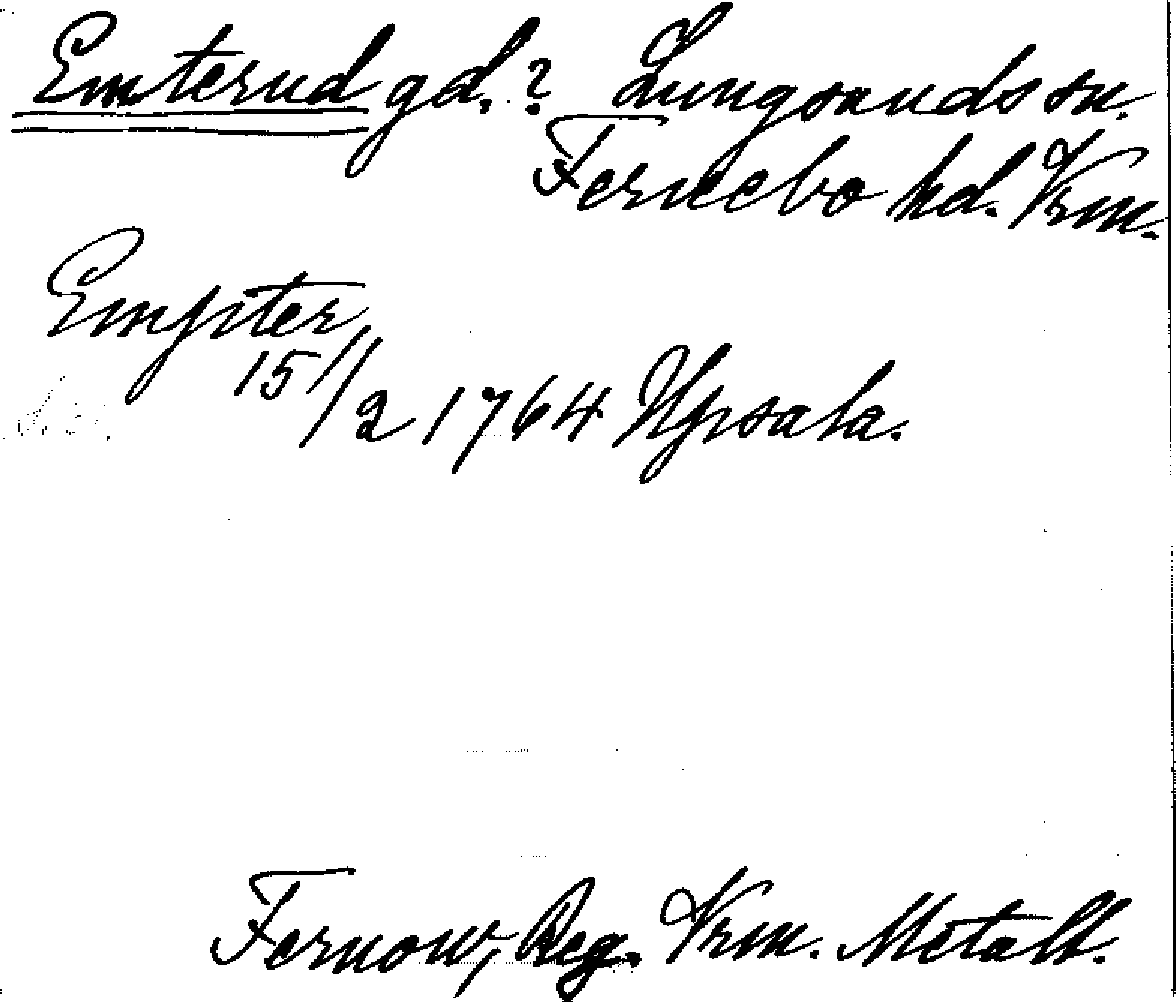 Emterud gd.? Lungsunds sn.
Fernebo hd. Vrm.
Empter
15/2 1764 Upsala.
Fernow, Reg. Vrm. Metall.